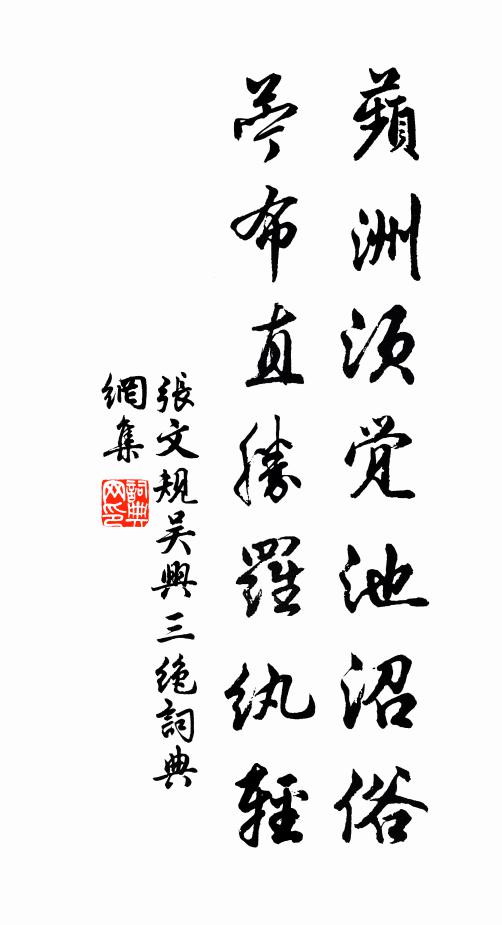 蘋洲須覺池沼俗
苧布直勝羅紈輕
張文規吴興三絶詞典
網集
詞典網印